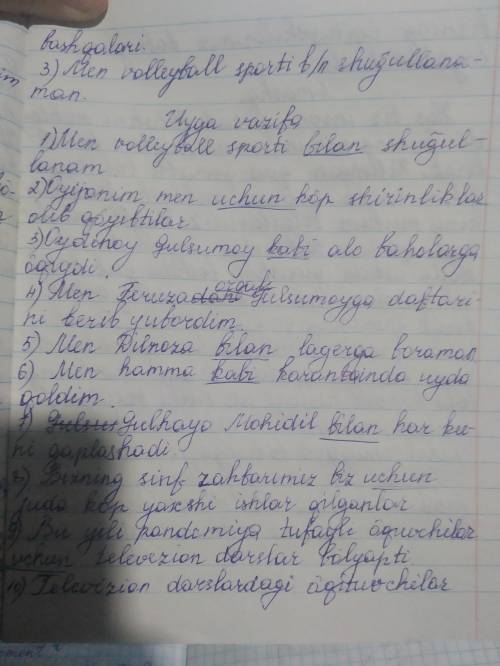 bashqalari.
3) Men volleyball sporti b/n shuğullana-
man.
Uyga vazifa
1) Men volleyball sporti bilan shuğul-
lanam
2) Oyijonim men uchun kóp shirinliklar
olib qóyibtilar
3) Oydinoy Gulsumoy kabi alo baholarga
óqiydi.
4) Men Feruza orqali Gulsumoyga daftari-
ni berib yubordim.
5) Men Dilnoza bilan lagerga boraman
6) Men hamma kabi karantinda uyda
qoldim.
7) Gulhayo Mohidil bilan har ku-
ni gaplashadi.
8) Bizning sinf rahbarimiz biz uchun
juda kóp yaxshi ishlar qilganlar
9) Bu yili pandemiya tufayli óquvchilar
uchun televizion darslar bólyapti
10) Televizion darslardagi óqituvchilar